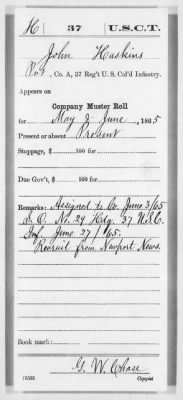 H 37 U.S.C.T.
John Haskins
Pvt, Co. A, 37 Reg't U. S. Col'd Infantry.
Appears on
Company Muster Roll
for May & June, 1865
Present or absent Present
Stoppage, $ 100 for
Due Gov't, $ 100 for
Remarks: Assigned to Co. June 3/65
S.O. No. 29 Hdq. 37 U.S.C.
Inf. June 37/65.
Recruit from Newport News.
Book mark:
G. W. Chase
Copyist